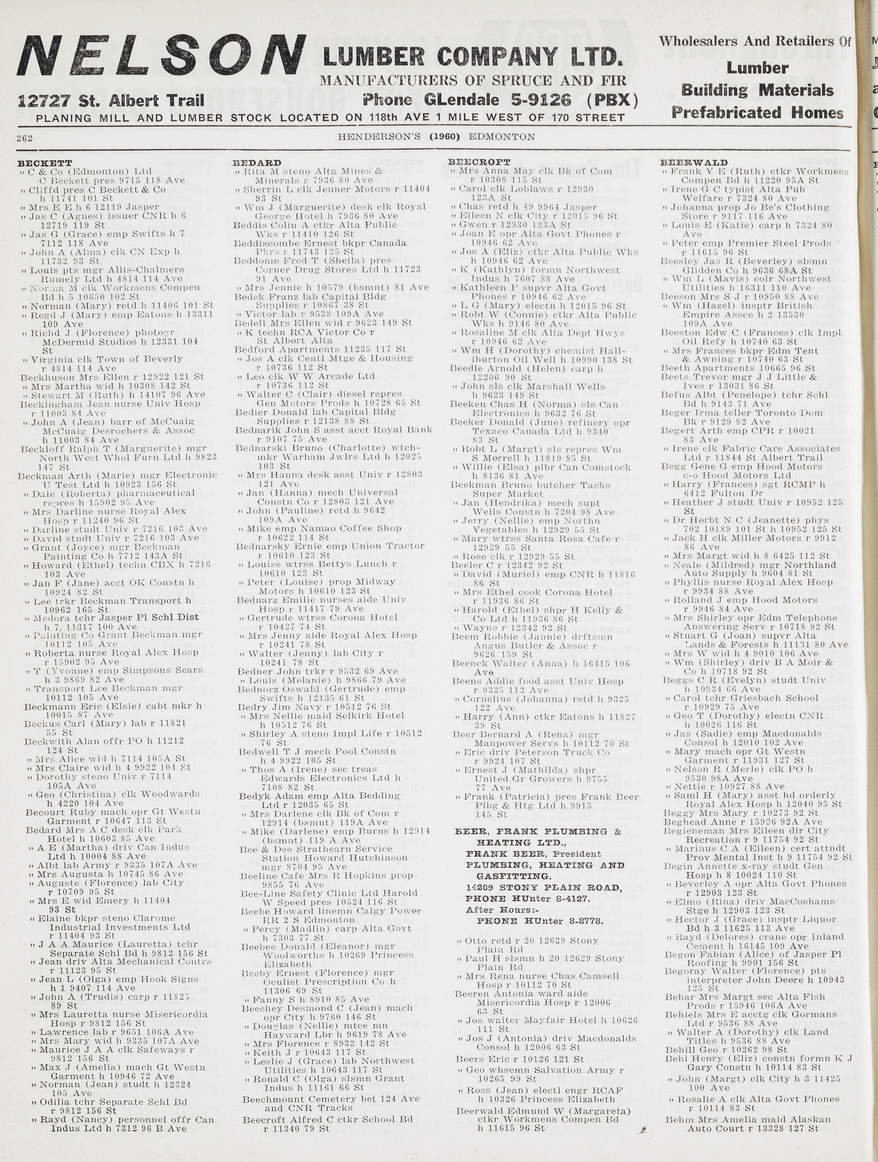 NELSON LUMBER COMPANY LTD.
MANUFACTURERS OF SPRUCE AND FIR
12727 St. Albert Trail Phone GLendale 5-9126 (PBX)
PLANING MILL AND LUMBER STOCK LOCATED ON 118th AVE 1 MILE WEST OF 170 STREET
Wholesalers And Retailers Of
Lumber
Building Materials
Prefabricated Homes
262 HENDERSON'S (1960) EDMONTON
BECKETT
" C & Co (Edmonton) Ltd
C Beckett pres 9715 118 Ave
" Cliffd pres C Beckett & Co
h 11741 101 St
" Mrs E E h 6 12119 Jasper
" Jas C (Agnes) issuer CNR h 6
12719 119 St
" Jas G (Grace) emp Swifts h 7
7112 118 Ave
" John A (Alma) clk CN Exp h
11732 93 St
" Louis pts mgr Allis-Chalmers
Rumely Ltd h 4814 114 Ave
" Norma M clk Workmens Compen
Bd h 5 10650 102 St
" Norman (Mary) retd h 11406 101 St
" Regd J (Mary) emp Eatons h 13311
109 Ave
" Richd J (Florence) photogr
McDermid Studios h 12331 104
St
" Virginia clk Town of Beverly
r 4814 114 Ave
Beckhuson Mrs Ellen r 12922 121 St
" Mrs Martha wid h 10308 142 St
" Stewart M (Ruth) h 14107 96 Ave
Beckingham Jean nurse Univ Hosp
r 11003 84 Ave
" John A (Jean) barr of McCuaig
McCuaig Desrochers & Assoc
h 11003 84 Ave
Beckloff Ralph T (Marguerite) mgr
North West Whol Furn Ltd h 9823
147 St
Beckman Arth (Marie) mgr Electronic
U Test Ltd h 10923 156 St
" Dale (Roberta) pharmaceutical
repres h 15902 95 Ave
" Mrs Darline nurse Royal Alex
Hosp r 11240 96 St
" Darline studt Univ r 7216 103 Ave
" David studt Univ r 7216 103 Ave
" Grant (Joyce) mgr Beckman
Painting Co h 7712 143A St
" Howard (Ethel) techn CBX h 7216
103 Ave
" Jan F (Jane) acct OK Constn h
10924 82 St
" Lee trkr Beckman Transport h
10962 165 St
" Medora tchr Jasper Pl Schl Dist
h 7, 11317 100 Ave
" Painting Co Grant Beckman mgr
10112 105 Ave
" Roberta nurse Royal Alex Hosp
r 15902 95 Ave
" T (Yvonne) emp Simpsons Sears
h 3 9869 82 Ave
" Transport Lee Beckman mgr
10112 105 Ave
Beckmann Eric (Elsie) cabt mkr h
10015 87 Ave
Beckus Carl (Mary) lab r 11821
55 St
Beckwith Alan offr PO h 11212
124 St
" Mrs Alice wid h 7114 105A St
" Mrs Claire wid h 4 9922 104 St
" Dorothy steno Univ r 7114
105A Ave
" Geo (Christina) clk Woodwards
h 4220 104 Ave
Becourt Ruby mach opr Gt Westn
Garment r 10647 113 St
Bedard Mrs A C desk clk Park
Hotel h 10603 85 Ave
" A E (Martha) driv Can Indus
Ltd h 10004 88 Ave
" Albt lab Army r 9335 107A Ave
" Mrs Augusta h 10745 86 Ave
" Auguste (Florence) lab City
r 10709 95 St
" Mrs E wid Emery h 11404
93 St
" Elaine bkpr steno Clarome
Industrial Investments Ltd
r 11404 93 St
" J A A Maurice (Lauretta) tchr
Separate Schl Bd h 9812 156 St
" Jean driv Alta Mechanical Contrs
r 11123 95 St
" Jean L (Olga) emp Hook Signs
h 1 9407 114 Ave
" John A (Trudis) carp r 11825
89 St
" Mrs Lauretta nurse Misericordia
Hosp r 9812 156 St
" Lawrence lab r 9651 106A Ave
" Mrs Mary wid h 9335 107A Ave
" Maurice J A A clk Safeways r
9812 156 St
" Max J (Amelia) mach Gt Westn
Garment h 10946 72 Ave
" Norman (Jean) studt h 12324
105 Ave
" Odilia tchr Separate Schl Bd
r 9812 156 St
" Rayd (Nancy) personnel offr Can
Indus Ltd h 7312 96 B Ave
BEDARD
" Rita M steno Alta Mines &
Minerals r 7936 80 Ave
" Sherrin L clk Jenner Motors r 11404
93 St
" Wm J (Marguerite) desk clk Royal
George Hotel h 7936 80 Ave
Beddis Colin A ctkr Alta Public
Wks r 11410 126 St
Beddiscombe Ernest bkpr Canada
Pkrs r 11743 125 St
Beddome Fred T (Sheila) pres
Corner Drug Stores Ltd h 11723
91 Ave
" Mrs Jennie h 10579 (bsmnt) 81 Ave
Bedek Franz lab Capital Bldg
Supplies r 10867 38 St
" Victor lab r 9538 109A Ave
Bedell Mrs Ellen wid r 9623 149 St
" K techn RCA Victor Co r
St Albert Alta
Bedford Apartments 11235 117 St
" Jos A clk Centl Mtge & Housing
r 10736 112 St
" Leo clk W W Arcade Ltd
r 10736 112 St
" Walter C (Clair) diesel repres
Gen Motors Prods h 10728 65 St
Bedier Donald lab Capital Bldg
Supplies r 12138 88 St
Bednarik John S asst acct Royal Bank
r 9107 75 Ave
Bednarski Bruno (Charlotte) wtch-
mkr Warham Jwlrs Ltd h 12025
103 St
" Mrs Hanna desk asst Univ r 12803
121 Ave
" Jan (Hanna) mech Universal
Constn Co r 12803 121 Ave
" John (Pauline) retd h 9642
109A Ave
" Mike emp Namao Coffee Shop
r 10622 114 St
Bednarsky Ernie emp Union Tractor
r 10610 123 St
" Louise wtrss Bettys Lunch r
10610 123 St
" Peter (Louise) prop Midway
Motors h 10610 123 St
Bednarz Emilie nurses aide Univ
Hosp r 11417 79 Ave
" Gertrude wtrss Corona Hotel
r 10427 74 St
" Mrs Jenny aide Royal Alex Hosp
r 10241 78 St
" Walter (Jenny) lab City r
10241 78 St
Bedner John trkr r 9532 69 Ave
" Louis (Melanie) h 9866 79 Ave
Bednorz Oswald (Gertrude) emp
Swifts h 12135 61 St
Bedry Jim Navy r 10512 76 St
" Mrs Nellie maid Selkirk Hotel
h 10512 76 St
" Shirley A steno Impl Life r 10512
76 St
Bedwell T J mech Pool Constn
h 4 9922 105 St
" Thos A (Irene) sec treas
Edwards Electronics Ltd h
7108 82 St
Bedyk Adam emp Alta Bedding
Ltd r 12035 65 St
" Mrs Darlene clk Bk of Com r
12914 (bsmnt) 119A Ave
" Mike (Darlene) emp Burns h 12914
(bsmnt) 119 A Ave
Bee & Dee Strathearn Service
Station Howard Hutchinson
mgr 8704 95 Ave
Beeline Cafe Mrs R Hopkins prop
9855 76 Ave
Bee-Line Safety Clinic Ltd Harold
W Speed pres 10524 116 St
Beebe Howard linemn Calgy Power
RR 2 S Edmonton
" Percy (Madlin) carp Alta Govt
h 7303 77 St
Beebee Donald (Eleanor) mgr
Woolworths h 10269 Princess
Elizabeth
Beeby Ernest (Florence) mgr
Oculist Prescription Co h
11306 69 St
" Fanny S h 8910 85 Ave
Beechey Desmond C (Jean) mach
opr City h 9760 146 St
" Douglas (Nellie) mtce mn
Hayward Lbr h 9619 78 Ave
" Mrs Florence r 8932 142 St
" Keith J r 10643 117 St
" Leslie J (Grace) lab Northwest
Utilities h 10643 117 St
" Ronald C (Olga) slsmn Grant
Indus h 11161 66 St
Beechmount Cemetery bet 124 Ave
and CNR Tracks
Beecroft Alfred C ctkr School Bd
r 11340 79 St
BEECROFT
" Mrs Anna May clk Bk of Com
r 10308 115 St
" Carol clk Loblaws r 12930
123A St
" Chas retd h 49 9964 Jasper
" Eileen N clk City r 12015 96 St
" Gwen r 12930 123A St
" Joan E opr Alta Govt Phones r
10946 62 Ave
" Jos A (Eliz) ctkr Alta Public Wks
h 10946 62 Ave
" K (Kathlyn) formn Northwest
Indus h 7607 88 Ave
" Kathleen F supvr Alta Govt
Phones r 10946 62 Ave
" L G (Mary) electn h 12015 96 St
" Robt W (Connie) ctkr Alta Public
Wks h 9146 80 Ave
" Rosaline M clk Alta Dept Hwys
r 10946 62 Ave
" Wm H (Dorothy) chemist Hall-
iburton Oil Well h 10990 138 St
Beedle Arnold (Helen) carp h
12206 90 St
" John sls clk Marshall Wells
h 9623 149 St
Beeken Chas H (Norma) sls Can
Electronics h 9632 76 St
Beeker Donald (June) refinery opr
Texaco Canada Ltd h 9340
83 St
" Robt L (Margt) sls repres Wm
S Merrell h 11819 85 St
" Willie (Elsa) plbr Can Comstock
h 8136 81 Ave
Beekman Bruno butcher Tacks
Super Market
" Jan (Hendrika) mech supt
Wells Constn h 7204 98 Ave
" Jerry (Nellie) emp Northn
Vegetables h 12929 55 St
" Mary wtrss Santa Rosa Cafe r
12929 55 St
" Rose clk r 12929 55 St
Beeler C r 12342 92 St
" David (Muriel) emp CNR h 11816
86 St
" Mrs Ethel cook Corona Hotel
r 11936 86 St
" Harold (Ethel) shpr H Kelly &
Co Ltd h 11936 86 St
" Wayne r 12342 92 St
Beem Robbie (Jannie) drftsmn
Angus Butler & Assoc r
9626 159 St
Beenck Walter (Anna) h 16415 106
Ave
Beens Addie food asst Univ Hosp
r 9325 112 Ave
" Cornelius (Johanna) retd h 9325
122 Ave
" Harry (Ann) ctkr Eatons h 11827
39 St
Beer Bernard A (Rena) mgr
Manpower Servs h 10112 70 St
" Eric driv Peterson Truck Co
r 9924 107 St
" Ernest J (Mathilda) shpr
United Gr Growers h 9755
77 Ave
" Frank (Patricia) pres Frank Beer
Plbg & Htg Ltd h 9915
145 St
BEER, FRANK PLUMBING &
HEATING LTD.,
FRANK BEER, President
PLUMBING, HEATING AND
GASFITTING.
14209 STONY PLAIN ROAD,
PHONE HUnter 8-4127.
After Hours:-
PHONE HUnter 8-8778.
" Otto retd r 20 12629 Stony
Plain Rd
" Paul H slsmn h 20 12629 Stony
Plain Rd
" Mrs Rena nurse Chas Camsell
Hosp r 10112 70 St
Beeren Antonia ward aide
Misericordia Hosp r 12006
63 St
" Jos waiter Mayfair Hotel h 10626
111 St
" Jos J (Antonia) driv Macdonalds
Consol h 12006 63 St
Beers Eric r 10126 121 St
" Geo whsemn Salvation Army r
10265 99 St
" Ross (Jean) electl engr RCAF
h 10326 Princess Elizabeth
Beerwald Edmund W (Margareta)
ctkr Workmens Compen Bd
h 11615 96 St
BEERWALD
" Frank V E (Ruth) ctkr Workmens
Compen Bd h 11220 95A St
" Irene G C typist Alta Pub
Welfare r 7324 80 Ave
" Johanna prop Jo Be's Clothing
Store r 9117 116 Ave
" Louis E (Katie) carp h 7324 80
Ave
" Peter emp Premier Steel Prods
r 11615 96 St
Beesley Jas R (Beverley) slsmn
Glidden Co h 9636 68A St
" Wm L (Mavis) colr Northwest
Utilities h 16311 110 Ave
Beeson Mrs S J r 10950 88 Ave
" Wm (Hazel) insptr British
Empire Assce h 2 13530
109A Ave
Beeston Edw C (Frances) clk Impl
Oil Refy h 10740 63 St
" Mrs Frances bkpr Edm Tent
& Awning r 10740 63 St
Beeth Apartments 10665 96 St
Beets Trevor mgr J J Little &
Ives r 13031 86 St
Befus Albt (Penelope) tchr Schl
Bd h 9143 71 Ave
Beger Irma teller Toronto Dom
Bk r 9129 82 Ave
Begert Arth emp CPR r 10021
83 Ave
" Irene clk Fabric Care Associates
Ltd r 11844 St Albert Trail
Begg Gene G emp Hood Motors
c-o Hood Motors Ltd
" Harry (Frances) sgt RCMP h
6412 Fulton Dr
" Heather J studt Univ r 10952 125
St
" Dr Herbt N C (Jeanette) phys
702 10189 101 St h 10952 125 St
" Jack H clk Miller Motors r 9912
86 Ave
" Mrs Margt wid h 8 6425 112 St
" Neale (Mildred) mgr Northland
Auto Supply h 9604 81 St
" Phyllis nurse Royal Alex Hosp
r 9934 88 Ave
" Rolland J emp Hood Motors
r 9946 84 Ave
" Mrs Shirley opr Edm Telephone
Answering Serv r 10718 92 St
" Stuart G (Joan) supvr Alta
Lands & Forests h 11131 80 Ave
" Mrs W wid h 4 9010 106 Ave
" Wm (Shirley) driv B A Moir &
Co h 10718 92 St
Beggs C R (Evelyn) studt Univ
h 10934 66 Ave
" Carol tchr Griesbach School
r 10929 75 Ave
" Geo T (Dorothy) electn CNR
h 10026 116 St
" Jas (Sadie) emp Macdonalds
Consol h 12010 102 Ave
" Mary mach opr Gt Westn
Garment r 11931 127 St
" Nelson R (Merle) clk PO h
9530 98A Ave
" Nettie r 10927 88 Ave
" Saml H (Mary) asst hd orderly
Royal Alex Hosp h 12040 95 St
Beggy Mrs Mary r 10273 92 St
Beghead Anne r 15926 92A Ave
Begieneman Mrs Eileen dir City
Recreation r 9 11754 92 St
" Marinus C A (Eileen) cert attndt
Prov Mental Inst h 9 11754 92 St
Begin Annette x-ray studt Gen
Hosp h 8 10024 110 St
" Beverley A opr Alta Govt Phones
r 12903 123 St
" Elmo (Rina) driv MacCoshams
Stge h 12903 123 St
" Hector J (Grace) insptr Liquor
Bd h 3 11625 113 Ave
" Rayd (Delores) crane opr Inland
Cement h 16145 109 Ave
Begon Fabian (Alice) of Jasper Pl
Roofing h 9901 156 St
Begoray Walter (Florence) pts
interpreter John Deere h 10943
125 St
Behar Mrs Margt sec Alta Fish
Prods r 15946 106A Ave
Behiels Mrs E acctg clk Gormans
Ltd r 9536 88 Ave
" Walter A (Dorothy) clk Land
Titles h 9536 88 Ave
Behill Geo r 10262 98 St
Behl Henry (Eliz) constn formn K J
Gary Constn h 10114 83 St
" John (Margt) clk City h 3 11425
100 Ave
" Rosalie A clk Alta Govt Phones
r 10114 83 St
Behm Mrs Amelia maid Alaskan
Auto Court r 13328 127 St